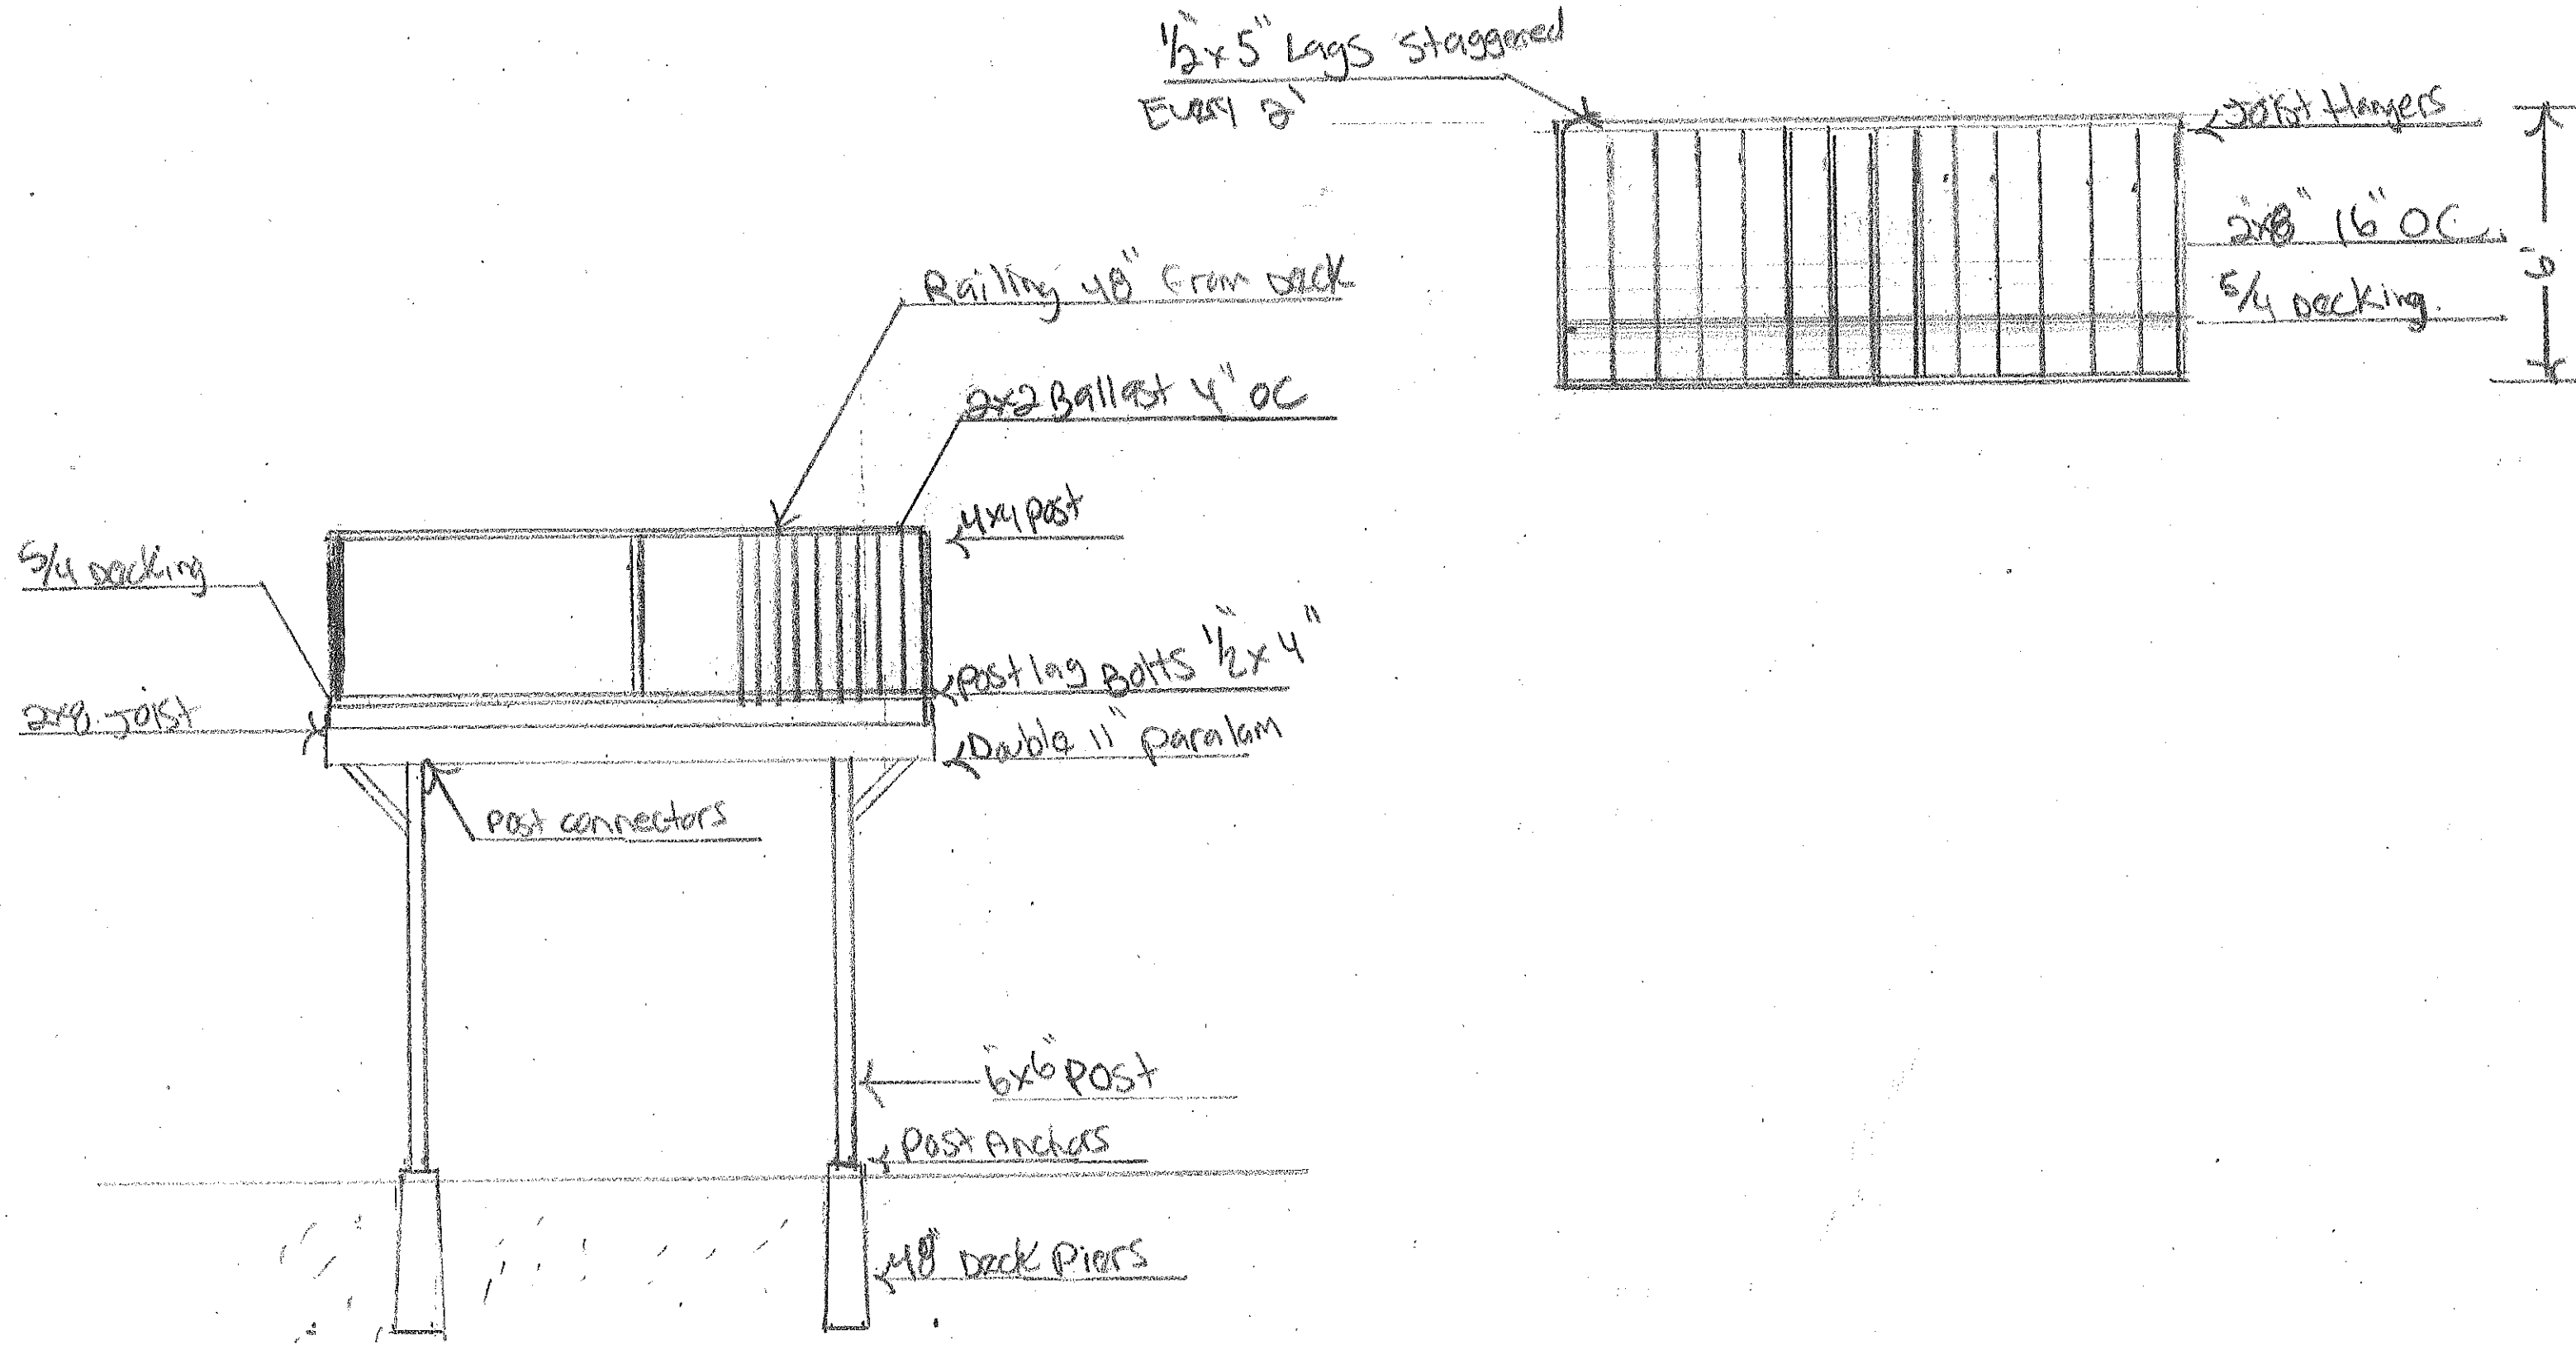 1/2"x5" Lags Staggered
Every 2'
Joist Hangers
2"x8" 16" OC.
6'
5/4 Decking.
Railing 48" From Deck
2x2 Ballast 4" OC
4x4 Post
5/4 Decking
Post lag Bolts 1/2"x4"
2x8 Joist
Double 11" Paralam
Post connectors
6"x6" Post
Post Anchors
48" Deck Piers